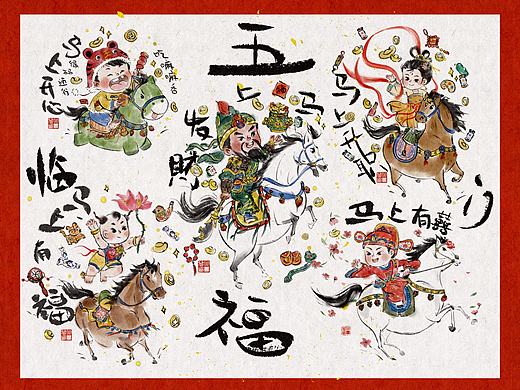 五
福
临
门
马上开心
吃嘛嘛香
马上发财
马上
马上有福
马上有囍